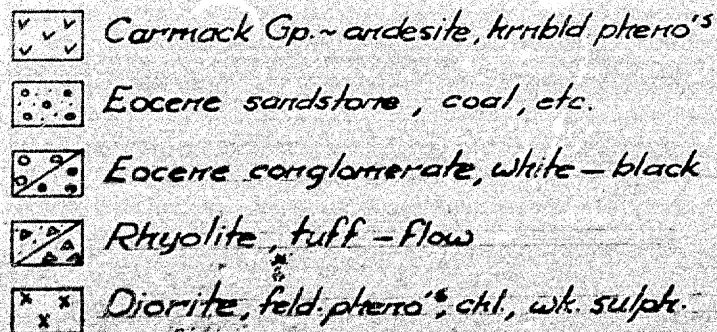 Carmack Gp.~andesite, hrnbld pheno's
Eocene sandstone, coal, etc.
Eocene conglomerate, white-black
Rhyolite, tuff-flow
Diorite, feld. pheno's, chl., wk. sulph.